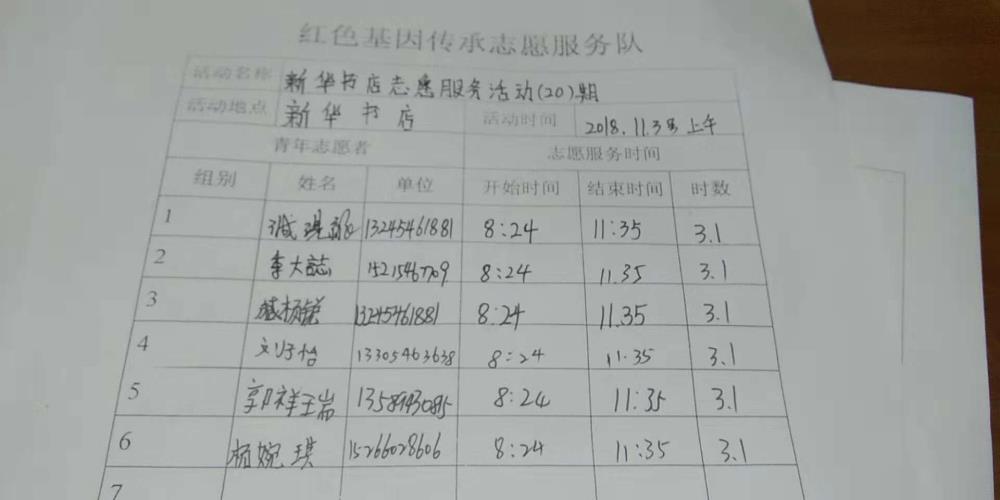 红色基因传承志愿服务队
活动名称 新华书店志愿服务活动(20)期
活动地点 新华书店 活动时间 2018.11.3号上午
青年志愿者 志愿服务时间
组别 姓名 单位 开始时间 结束时间 时数
1 13245461881 8:24 11:35 3.1
2 李大誌 15215467709 8:24 11.35 3.1
3 13245461881 8:24 11.35 3.1
4 刘子怡 13305463638 8:24 11:35 3.1
5 郭祥玉岩 13589943085 8:24 11:35 3.1
6 杨婉琪 15266028606 8:24 11:35 3.1
7